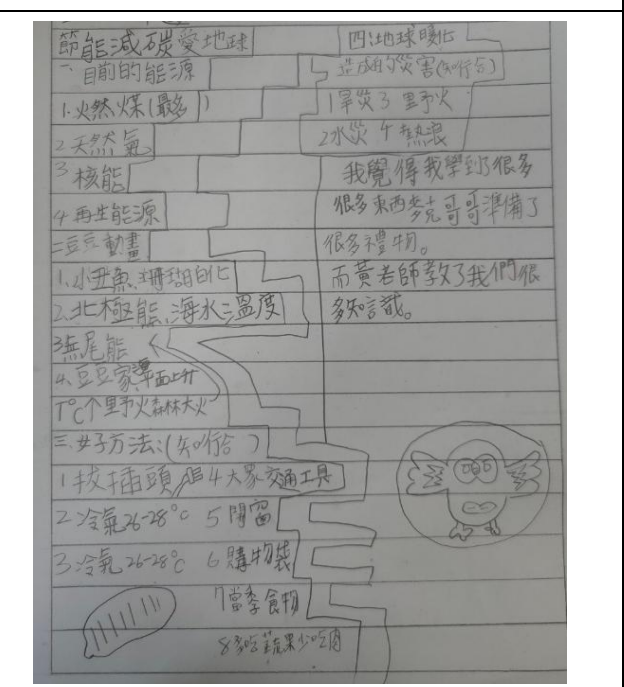 節能減碳愛地球
一、目前的能源
1.火然煤(最多)
2天然氣
3核能
4再生能源
二豆豆動畫
1.小丑魚.珊瑚白化
2.北極能.海水溫度
3無尾能
4.豆豆家 面上升
1℃个野火森林大火
三.好方法:(知行合)
1拔插頭 4大眾交通工具
2冷氣26-28℃ 5閉窗
3.冷氣26-28℃ 6購物袋
7當季食物
8多吃蔬果少吃肉
四:地球暖化
造成的災害(知行合)
1旱災3野火
2水災4熱浪
我覺得我學到了很多
很多東西麥克哥哥準備了
很多禮物。
而黃老師教了我們很
多知識。